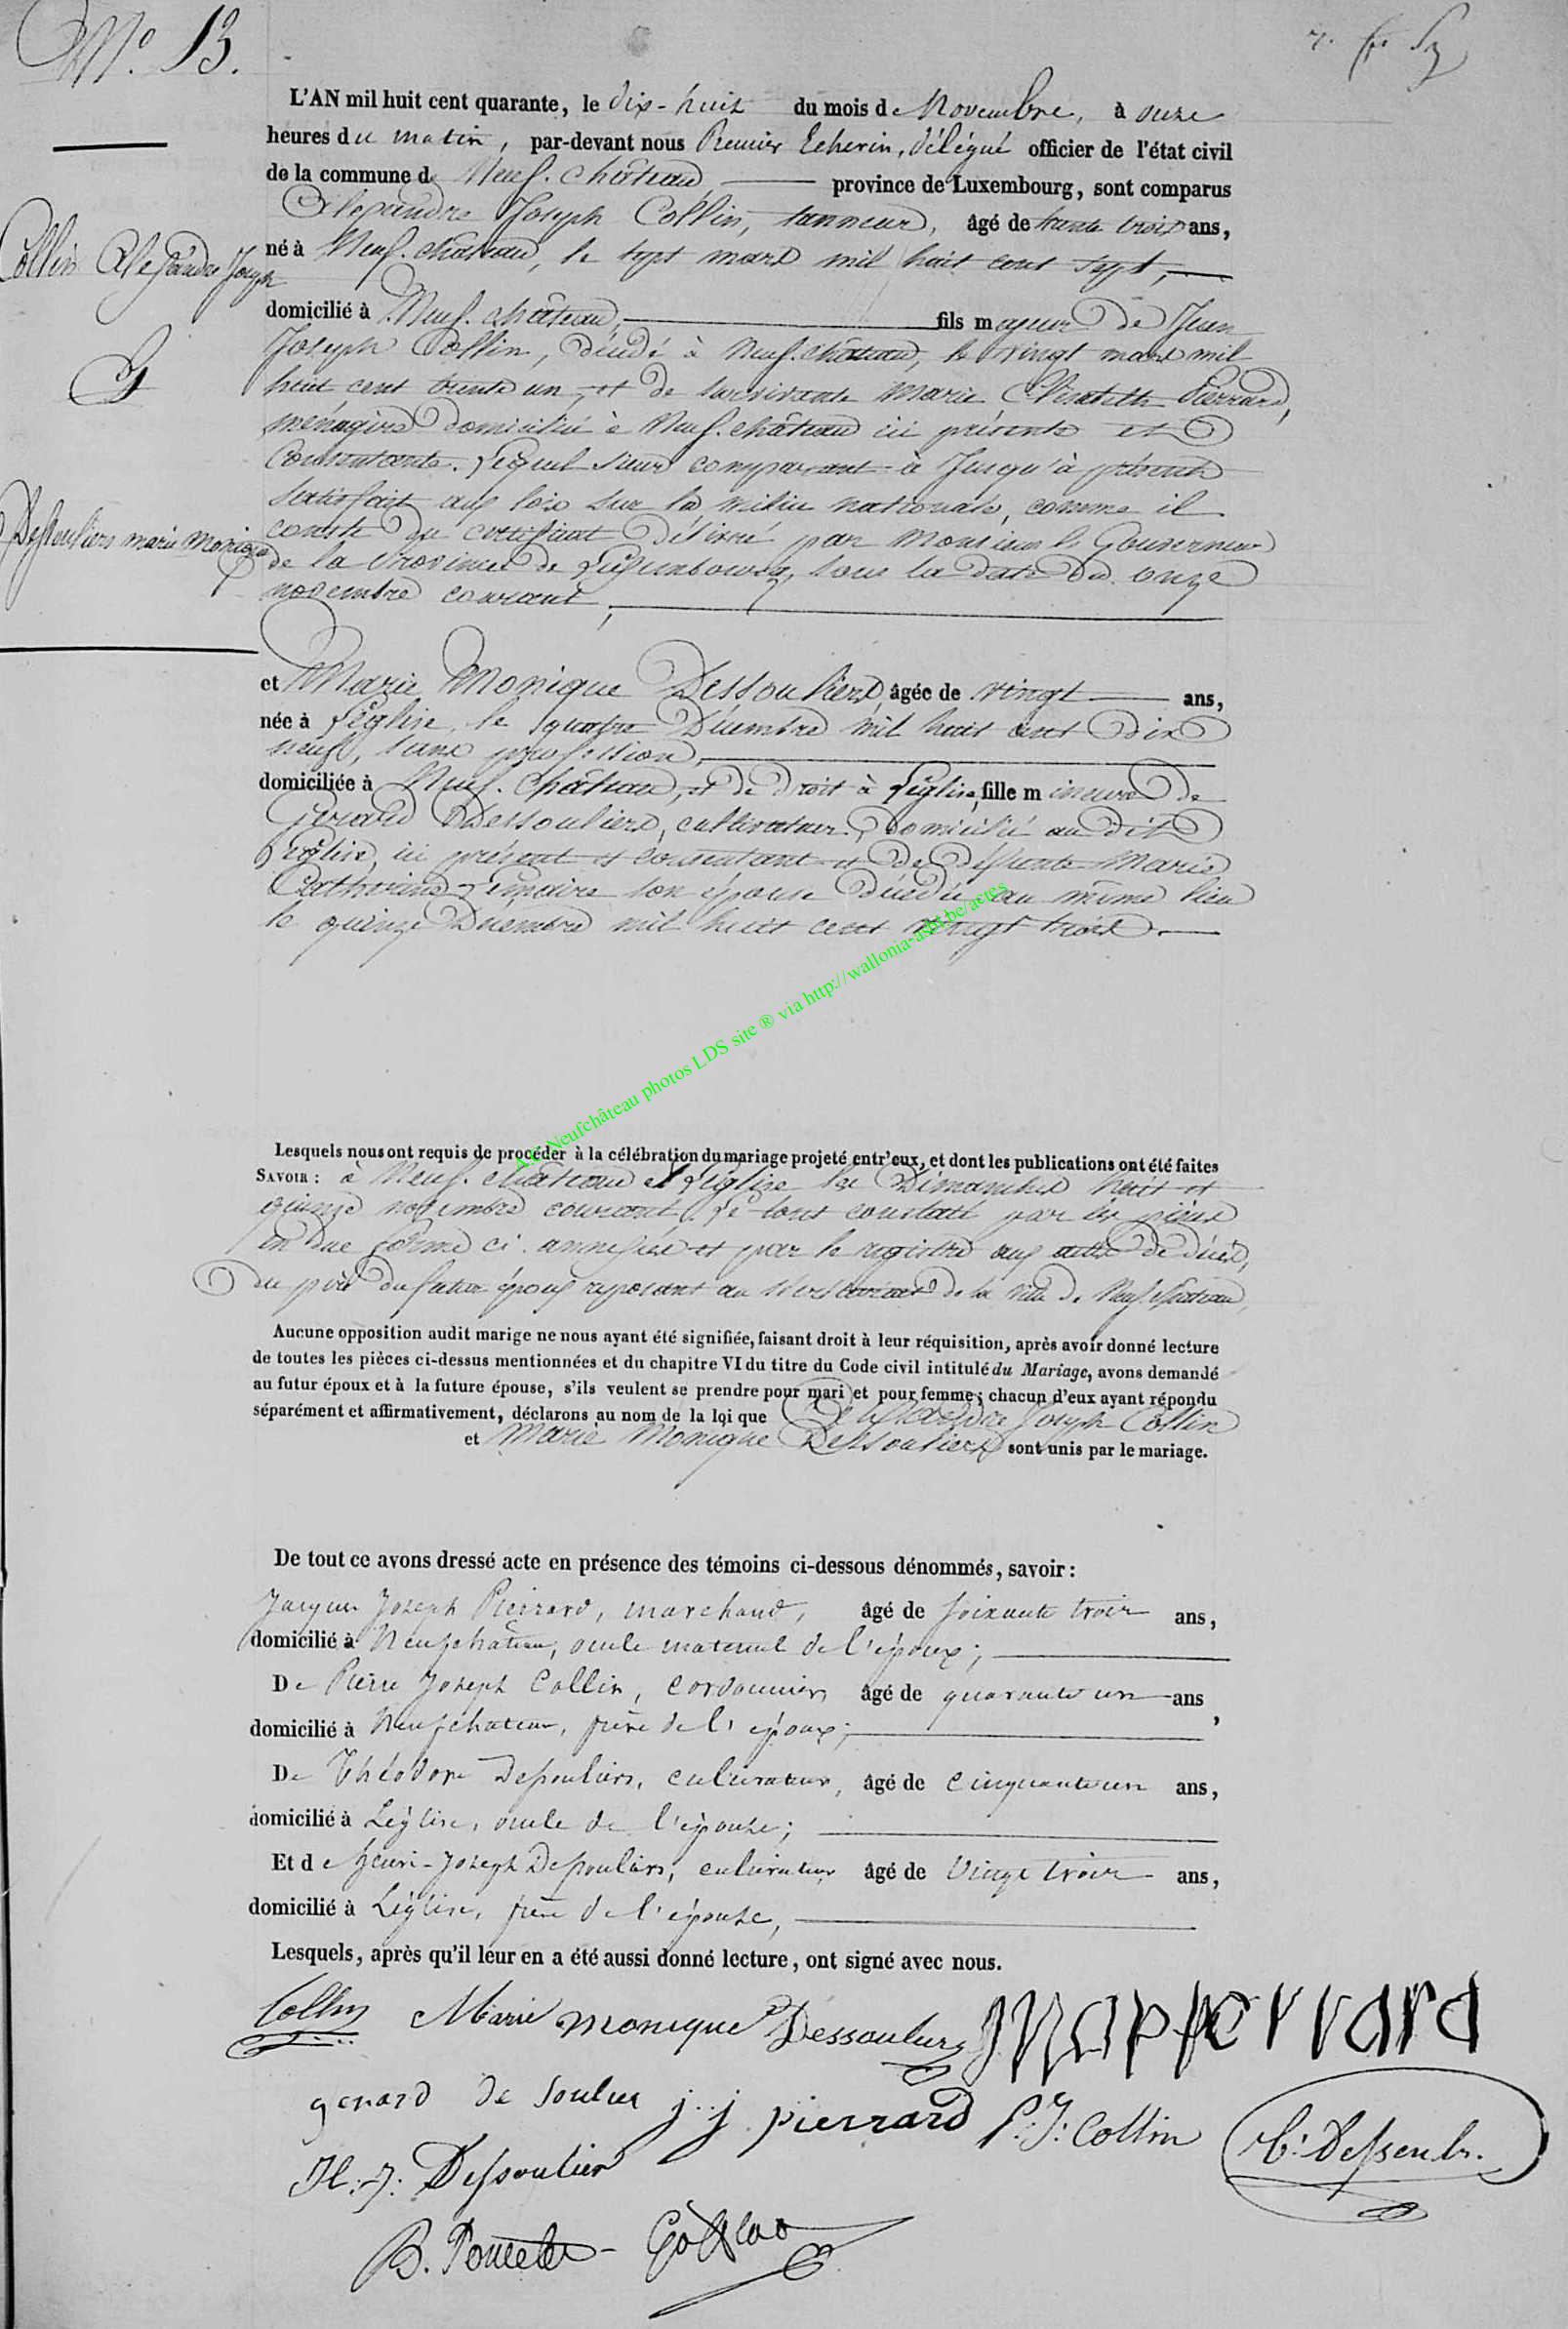 N.º 13.
L'AN mil huit cent quarante, le dix-huit du mois de Novembre, à onze
heures du matin, par-devant nous Premier Echevin, délégué officier de l'état civil
de la commune de Neuf-château, province de Luxembourg, sont comparus
Alexandre Joseph Collin, tanneur, âgé de trente trois ans,
Collin Alexandre Joseph
né à Neuf-château, le sept mars mil huit cent sept,
domicilié à Neuf-château, fils majeur de Jean
Joseph Collin, décédé à Neuf-château, le vingt mars mil
huit cent trente un, et de survivante Marie Elisabeth Pierrard,
ménagère domicilié à Neuf-château ici présente et
Consentante. Lequel sieur comparant à Jusqu'à présent
satisfait aux lois sur la milice nationale, comme il
Dessouliers marie monique
conste du certificat délivré par Monsieur le Gouverneur
de la Province de Luxembourg, sous la date du onze
novembre courant,
et Marie Monique Dessouliers, âgée de vingt ans,
née à Léglise, le quatre Décembre mil huit cent dix
neuf, sans profession,
domiciliée à Neuf-Château, et de droit à Léglise, fille mineure de
Gerard Dessouliers, cultivateur, domicilié au dit
Léglise, ici présent et consentant et de défunte Marie
Catherine Lemaire son épouse décédée au même lieu
le quinze Décembre mil huit cent vingt trois.
A.C Neufchâteau photos LDS site ® via http://wallonia-asbl.be/actes
Lesquels nous ont requis de procéder à la célébration du mariage projeté entr'eux, et dont les publications ont été faites
SAVOIR : à Neuf-château et Léglise les Dimanches huit et
quinze novembre courant, Le tout constaté par les pièces
en due forme ci annexées et par le registre aux actes de décès,
du père du futur époux reposant au secrétariat de la ville de Neufchâteau,
Aucune opposition audit marige ne nous ayant été signifiée, faisant droit à leur réquisition, après avoir donné lecture
de toutes les pièces ci-dessus mentionnées et du chapitre VI du titre du Code civil intitulé du Mariage, avons demandé
au futur époux et à la future épouse, s'ils veulent se prendre pour mari et pour femme; chacun d'eux ayant répondu
séparément et affirmativement, déclarons au nom de la loi que Alexandre Joseph Collin
et Marie Monique Dessouliers sont unis par le mariage.
De tout ce avons dressé acte en présence des témoins ci-dessous dénommés, savoir :
Jacques Joseph Pierrard, marchand, âgé de soixante trois ans,
domicilié à Neufchâteau, oncle maternel de l'époux;
De Pierre Joseph Collin, cordonnier, âgé de quarante un ans,
domicilié à Neufchateau, frère de l'époux;
De Théodore Dessouliers, cultivateur, âgé de cinquante un ans,
domicilié à Léglise, oncle de l'épouse;
Et de Henri-Joseph Dessouliers, cultivateur, âgé de vingt trois ans,
domicilié à Léglise, frère de l'épouse,
Lesquels, après qu'il leur en a été aussi donné lecture, ont signé avec nous.
Collin Marie monique Dessouliers
gerard de soulier j. j. pierrard P. J: Collin
H: J: Dessoulier
B. Poncelet